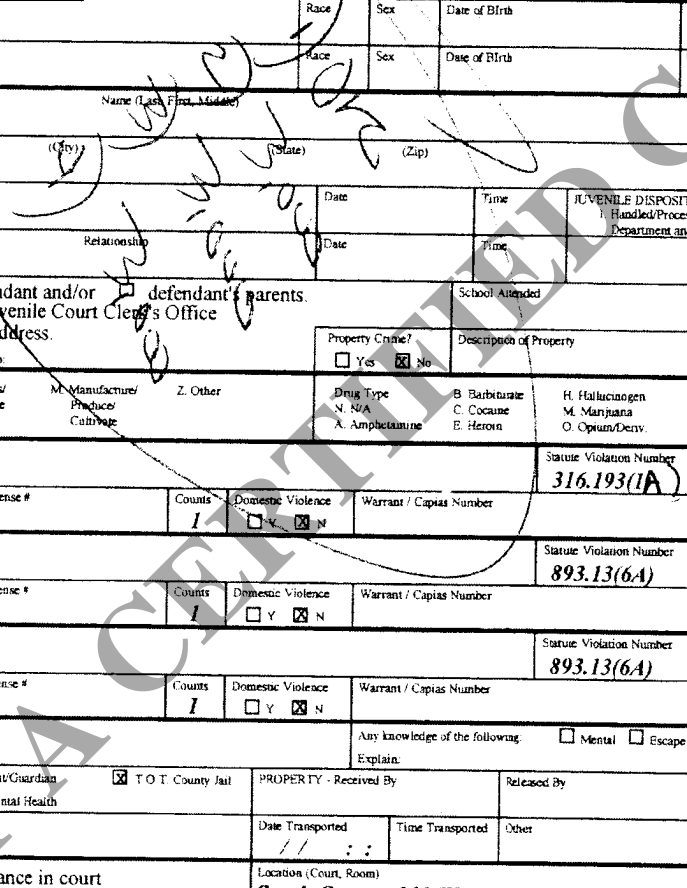 Race Sex Date of BIrth
Race Sex Date of BIrth
Name (Last, First, Middle)
(City) (State) (Zip)
Date Time JUVENILE DISPOSIT
1. Handled/Proces
Department an
Relationship Date Time
dant and/or defendant's parents.
School Attended
venile Court Clerk's Office
ddress.
Property Crime? Description of Property
Yes X No
M. Manufacture/ Z. Other
Produce/
Cultivate
Drug Type B. Barbiturate H. Hallucinogen
N. N/A C. Cocaine M. Marijuana
A. Amphetamine E. Heroin O. Opium/Deriv.
Statute Violation Number
316.193(1A)
ense # Counts Domestic Violence Warrant / Capias Number
1 Y X N
Statute Violation Number
893.13(6A)
ense # Counts Domestic Violence Warrant / Capias Number
1 Y X N
Statute Violation Number
893.13(6A)
ense # Counts Domestic Violence Warrant / Capias Number
1 Y X N
Any knowledge of the following: Mental Escape
Explain:
t/Guardian X T O T County Jail PROPERTY - Received By Released By
ntal Health
Date Transported Time Transported Other
/ / : :
ance in court Location (Court, Room)
A CERTIFIED C